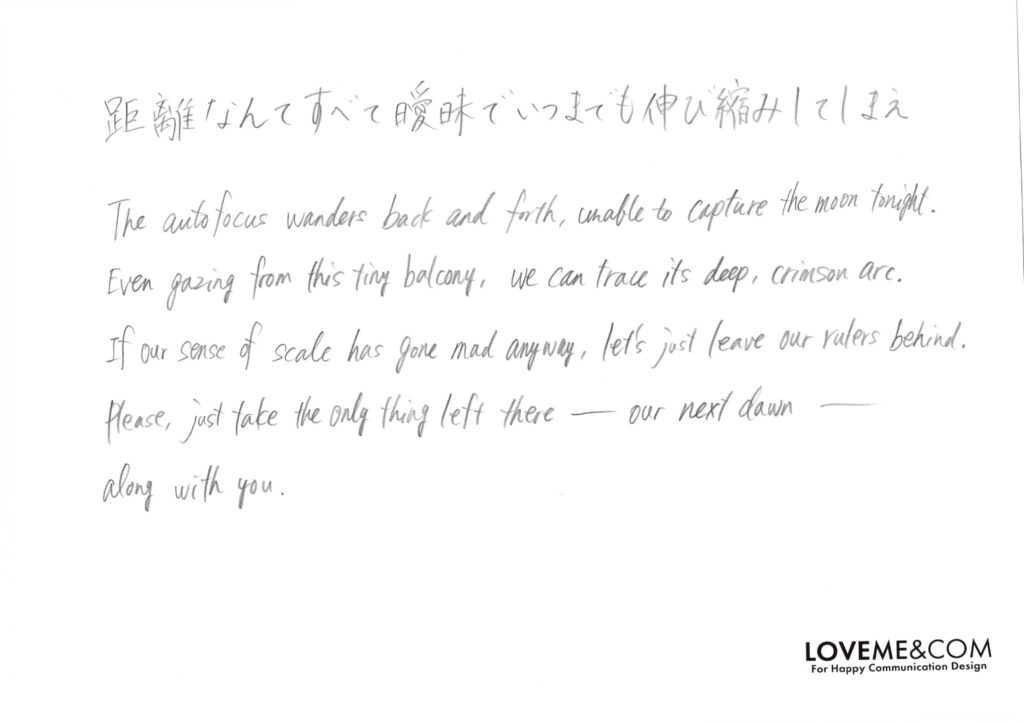 距離なんてすべて曖昧でいつまでも伸び縮みしてしまえ
The autofocus wanders back and forth, unable to capture the moon tonight.
Even gazing from this tiny balcony, we can trace its deep, crimson arc.
If our sense of scale has gone mad anyway, let's just leave our rulers behind.
Please, just take the only thing left there — our next dawn —
along with you.
LOVEME&COM
For Happy Communication Design